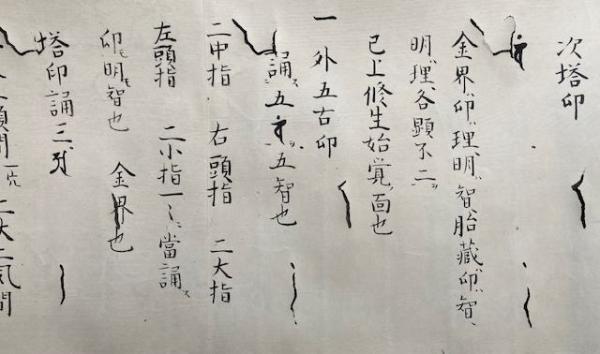 次塔印
金界印理明智胎藏印智
明理各顯不二
已上修生始覚面也
一 外五古印
誦五五智也
二中指 右頭指 二大指
左頭指 二小指一〻當誦ス
印明智也 金界也
塔印誦三
頭間一穴 二大二風間